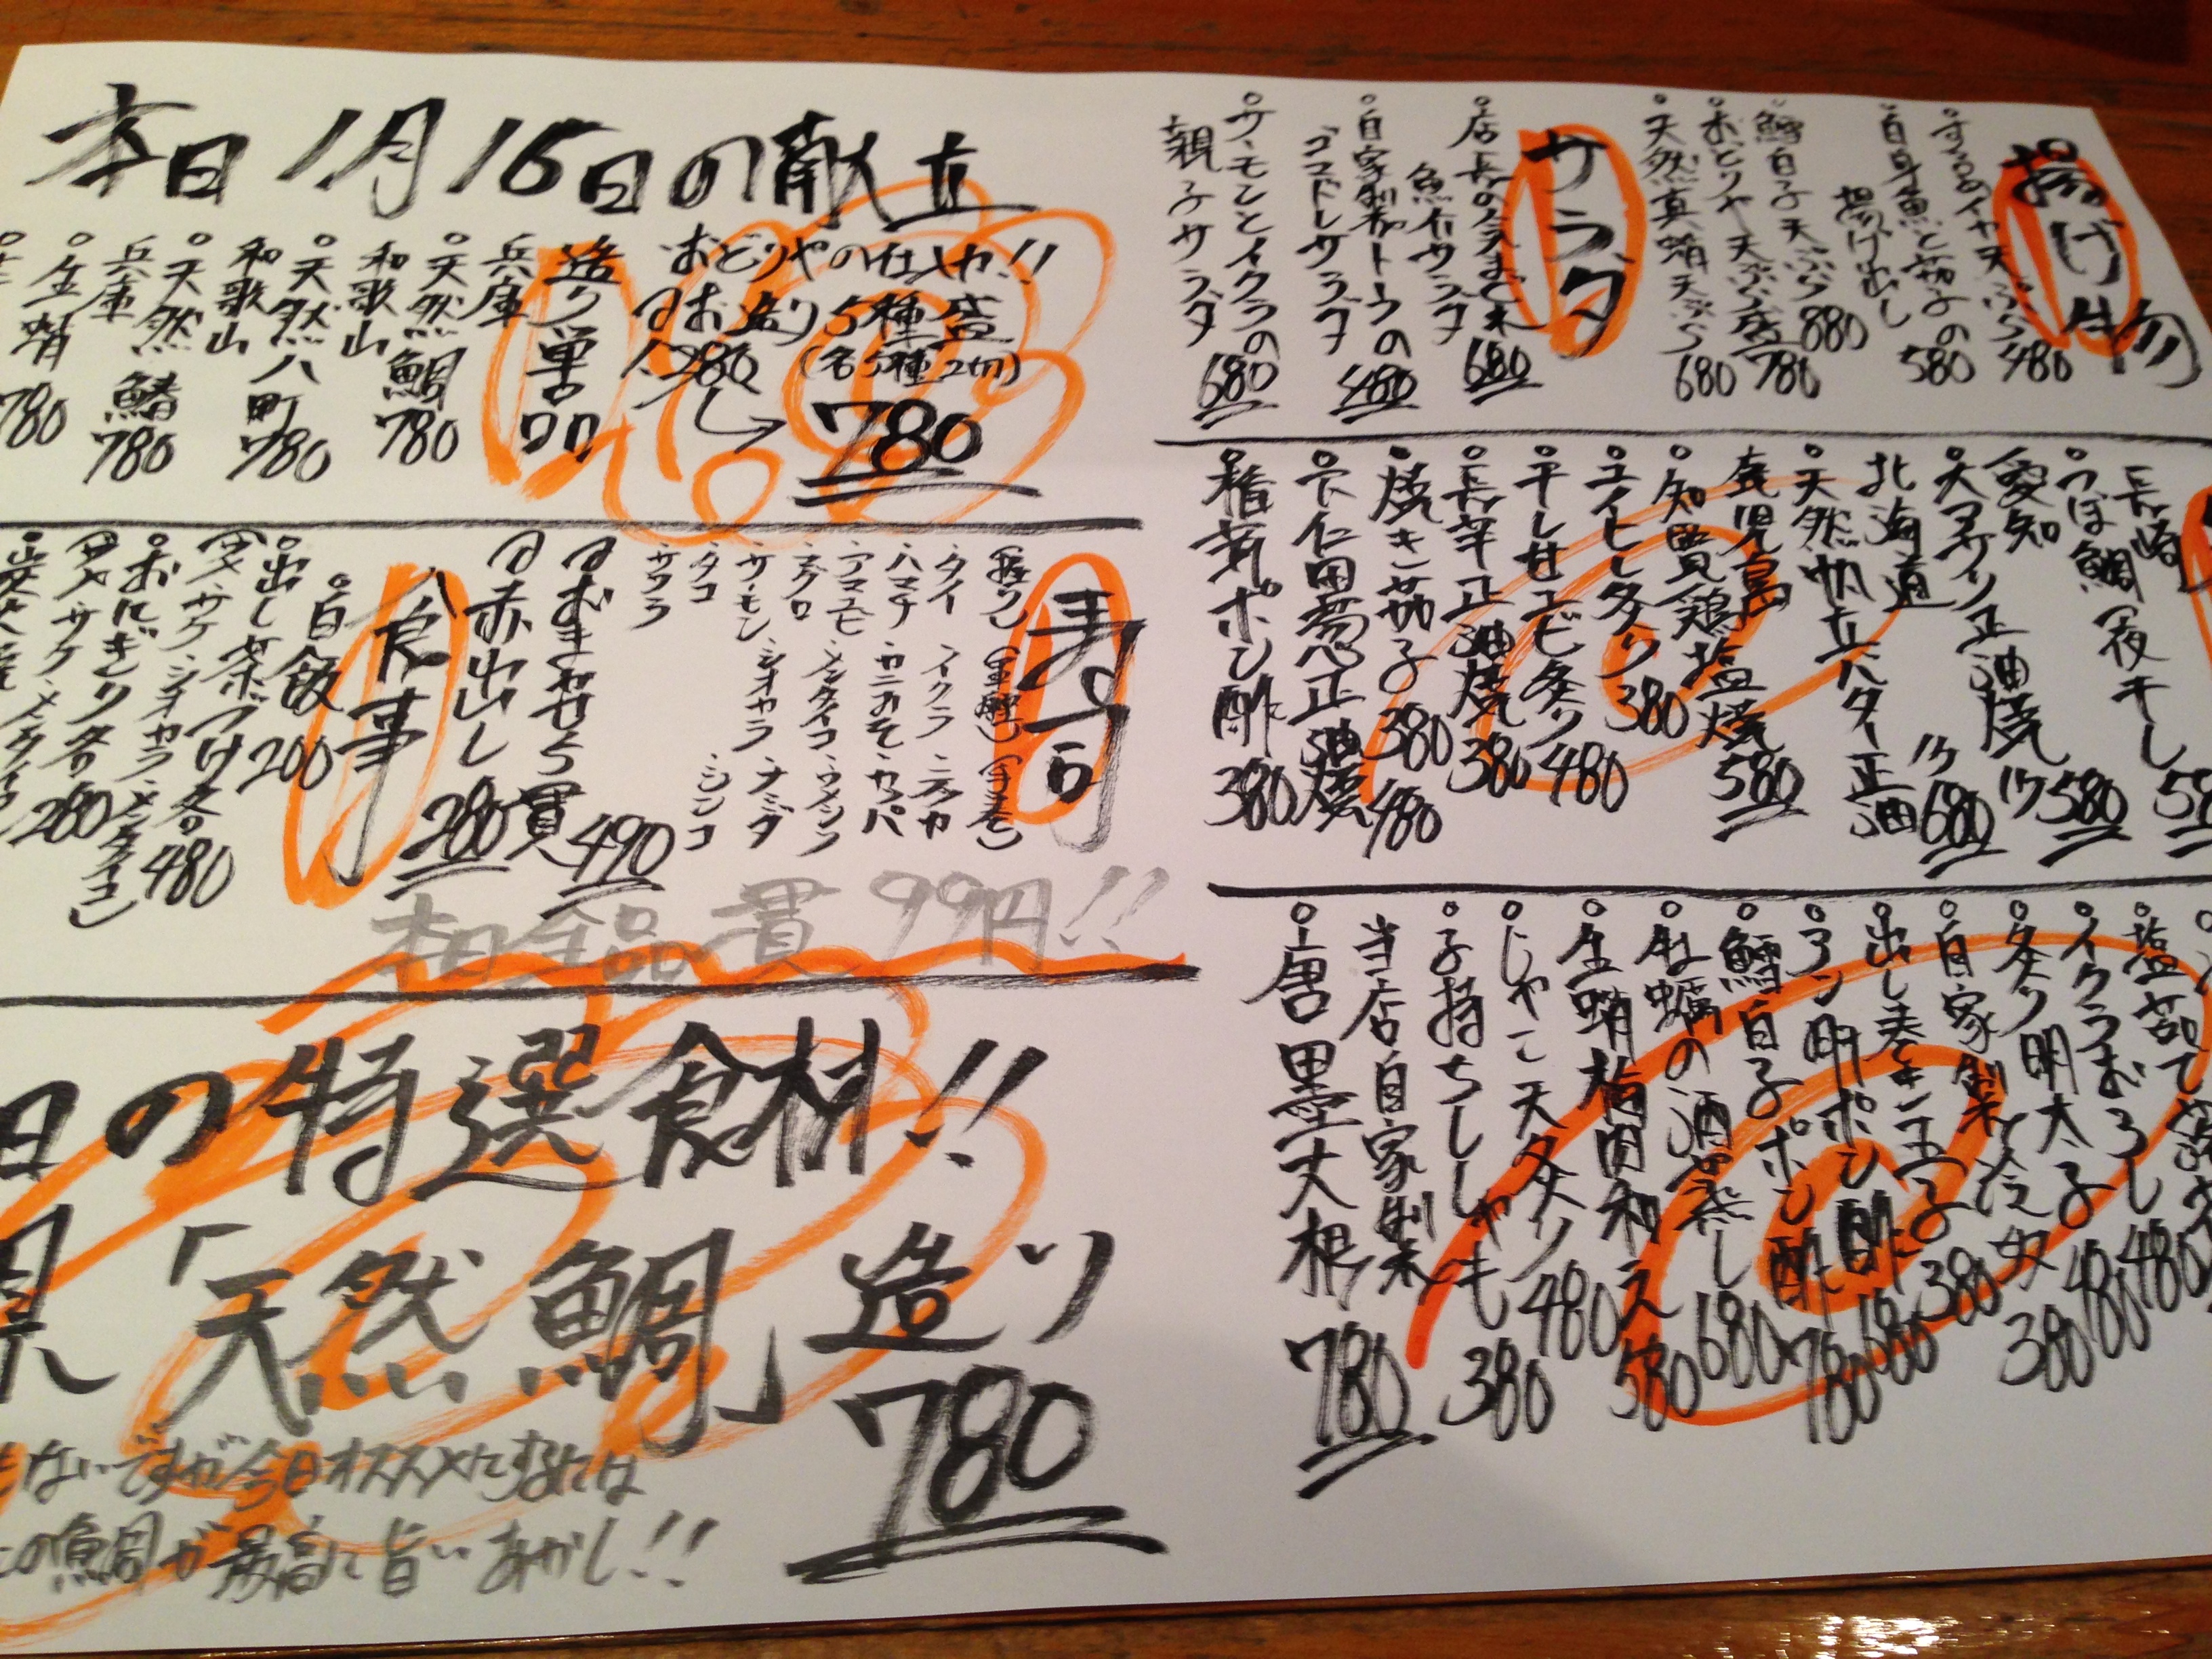 本日1月16日の献立
おどりやの仕入れ!!
お造り5種盛
(各5種2切)
1,280
780
造り単品
兵庫
天然鯛
780
和歌山
天然八町
780
和歌山
天然鰆
780
兵庫
生蛸
780
寿司
(握り)
(軍艦)
(手巻)
・タイ
・イクラ
・ハマチ
・カニみそ
・カッパ
・アマエビ
・メンタイコ
・マグロ
・サーモン
・シオカラ
・タコ
・シンコ
・サワラ
おまかせ5貫
490
赤出し
280
本日全品一貫99円!!
食事
白飯
200
出し茶づけ各
480
おにぎり各
280
日の特選食材!!
「天然鯛」造り
780
ないですが今日オススメにするには
の鯛が最高に旨いあかし!!
揚げ物
天ぷら
480
白身魚と茄子の
揚げ出し
580
鱈白子天ぷら
880
おどりや天ぷら盛
780
天然真蛸天ぷら
680
サラダ
店長の気まぐれ
魚介サラダ
680
自家製トーフの
ゴマドレサラダ
480
サーモンとイクラの
親子サラダ
680
長崎
つぼ鯛一夜干し
愛知
大アサリ正油焼
1ヶ580
北海道
天然帆立バター正油
1ヶ680
鹿児島
知覧鶏塩焼
580
エイヒレ炙り
380
干し甘エビ炙り
480
長芋正油焼
380
焼き茄子
380
下仁田葱正油焼
480
椎茸ポン酢
380
イクラおろし
480
炙り明太子
480
自家製冷奴
380
出し巻き玉子
380
アン肝ポン酢
680
鱈白子ポン酢
780
牡蠣の酒蒸し
680
生蛸梅肉和え
580
じゃこ天炙り
480
子持ちししゃも
380
当店自家製
唐墨大根
780